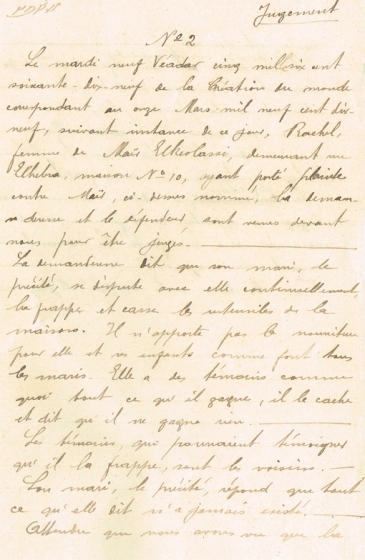 Jugement
No 2
Le mardi neuf Véadar cinq mil six cent
soixante-dix-neuf de la Création du monde
correspondant au onze Mars mil neuf cent dix-
neuf, suivant instance de ce jour, Rachel,
femme de Maïr Elkeslassi, demeurant rue
Elkebra, maison No 10, ayant porté plainte
contre Maïr, ci-dessus nommé, la deman-
deresse et le défendeur sont venus devant
nous pour être jugés.
La demanderesse dit que son mari, le
précité, se dispute avec elle continuellement,
la frappe et casse les ustensiles de la
maison. Il n'apporte pas la nourriture
pour elle et ses enfants comme font tous
les maris. Elle a des témoins comme
quoi tout ce qu'il gagne, il le cache
et dit qu'il ne gagne rien.
Les témoins, qui pourraient témoigner
qu'il la frappe, sont les voisins.
Son mari, le précité, répond que tout
ce qu'elle dit n'a jamais existé.
Attendu que nous avons vu que la